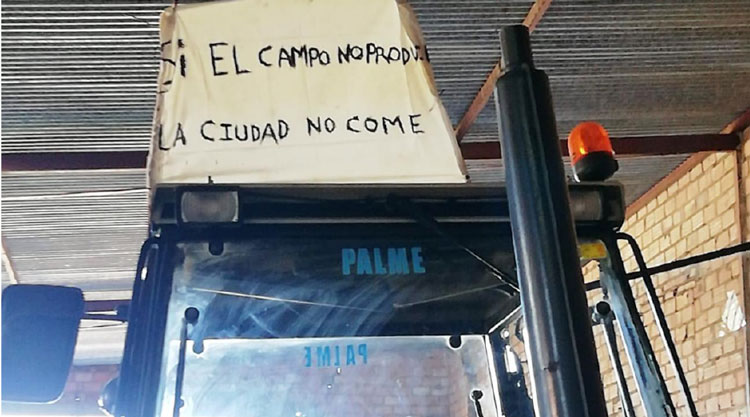 Si EL CAMPO NO PRODUCE
LA CIUDAD NO COME
PALME
PALME